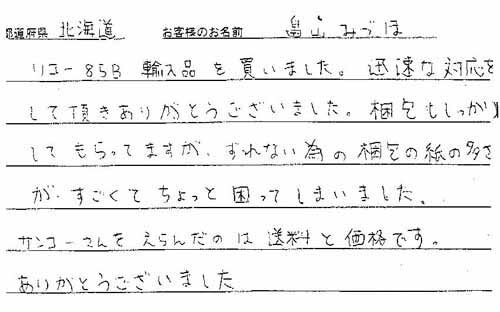 都道府県 北海道 お客様のお名前 畠山 みづほ
リコー85B 輸入品を買いました。迅速な対応を
して頂きありがとうございました。梱包もしっかり
してもらってますが、ずれない為の梱包の紙の多さ
が、すごくてちょっと困ってしまいました。
サンコーさんをえらんだのは送料と価格です。
ありがとうございました